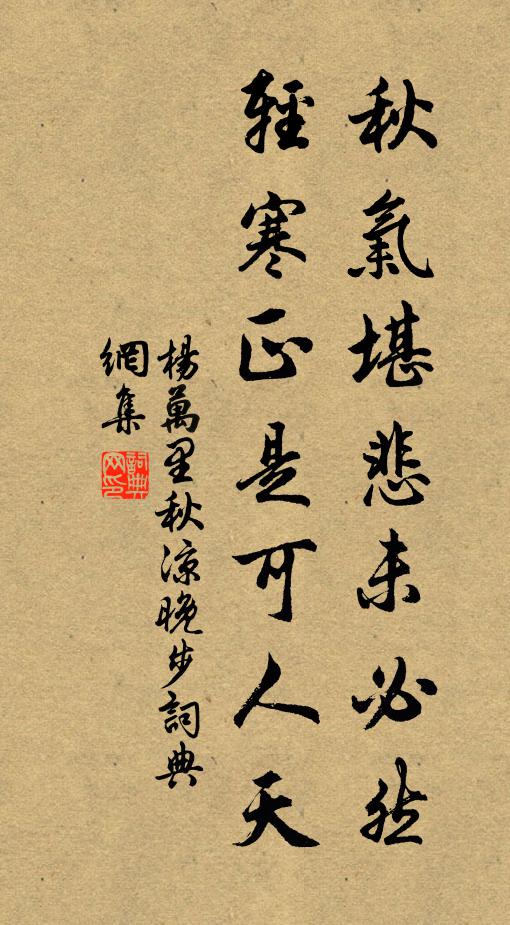 秋氣堪悲未必然
輕寒正是可人天
楊萬里秋涼晚步詞典
網集
詞典
网印